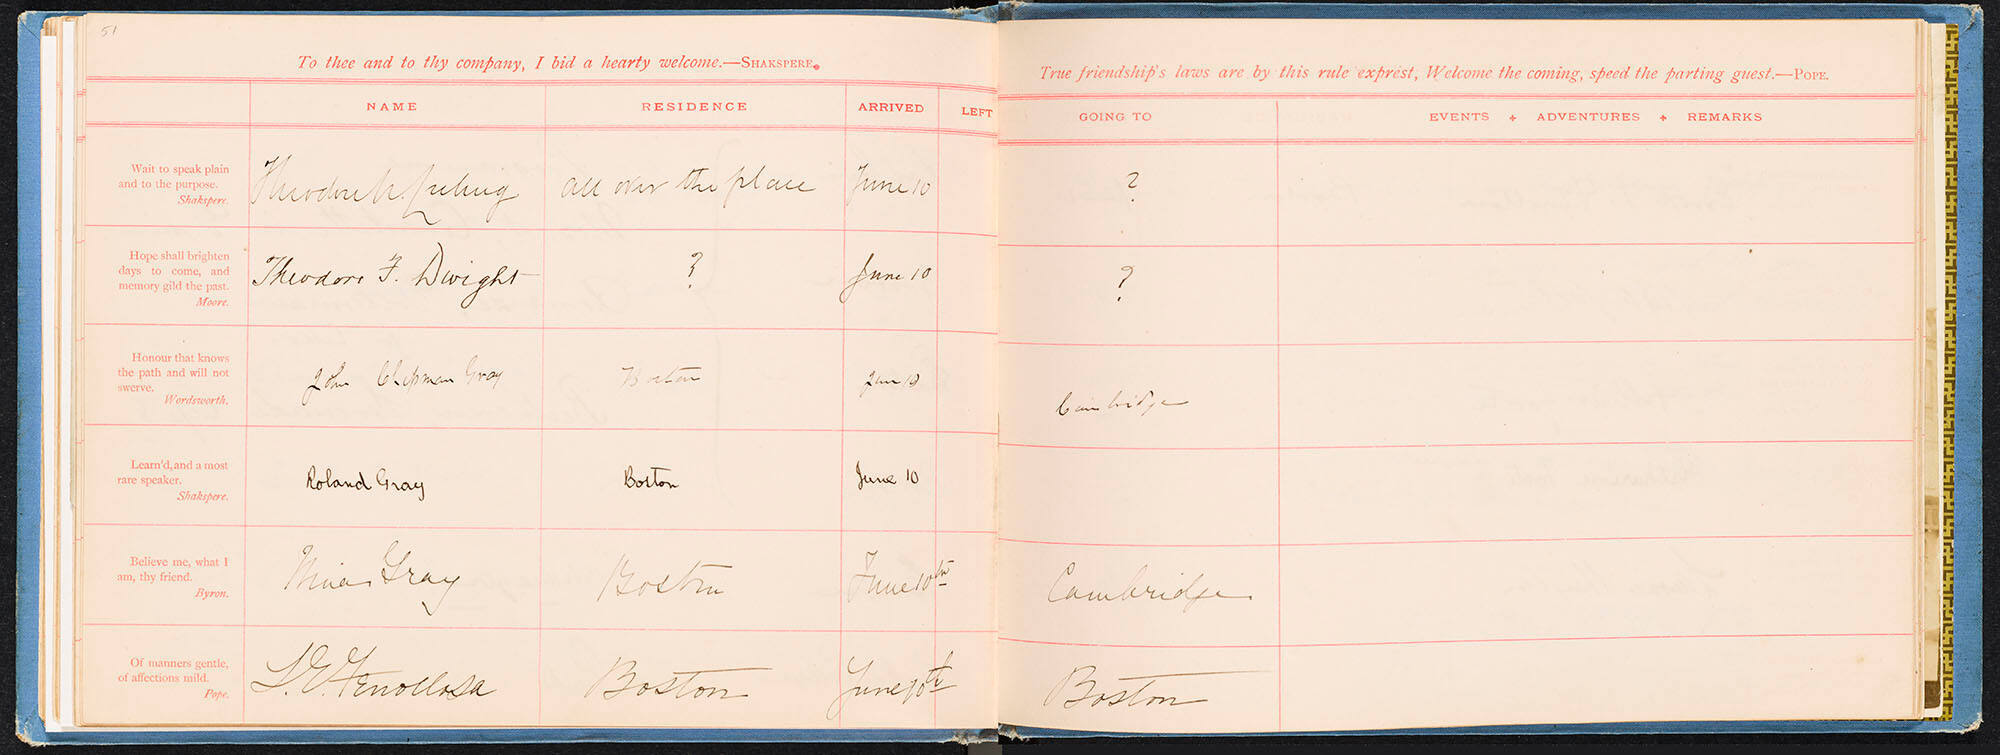 51
To thee and to thy company, I bid a hearty welcome.—SHAKSPERE.
NAME RESIDENCE ARRIVED LEFT
Wait to speak plain
and to the purpose.
Shakspere.
all over the place June 10
Hope shall brighten
days to come, and
memory gild the past.
Moore.
Theodore F. Dwight ? June 10
Honour that knows
the path and will not
swerve.
Wordsworth.
John Chipman Gray Boston June 10
Learn'd, and a most
rare speaker.
Shakspere.
Roland Gray Boston June 10
Believe me, what I
am, thy friend.
Byron.
Nina Gray Boston June 10th
Of manners gentle,
of affections mild.
Pope.
L. E. Fenollosa Boston June 10th
True friendship's laws are by this rule exprest, Welcome the coming, speed the parting guest.—POPE.
GOING TO EVENTS + ADVENTURES + REMARKS
?
?
Cambridge
Cambridge
Boston